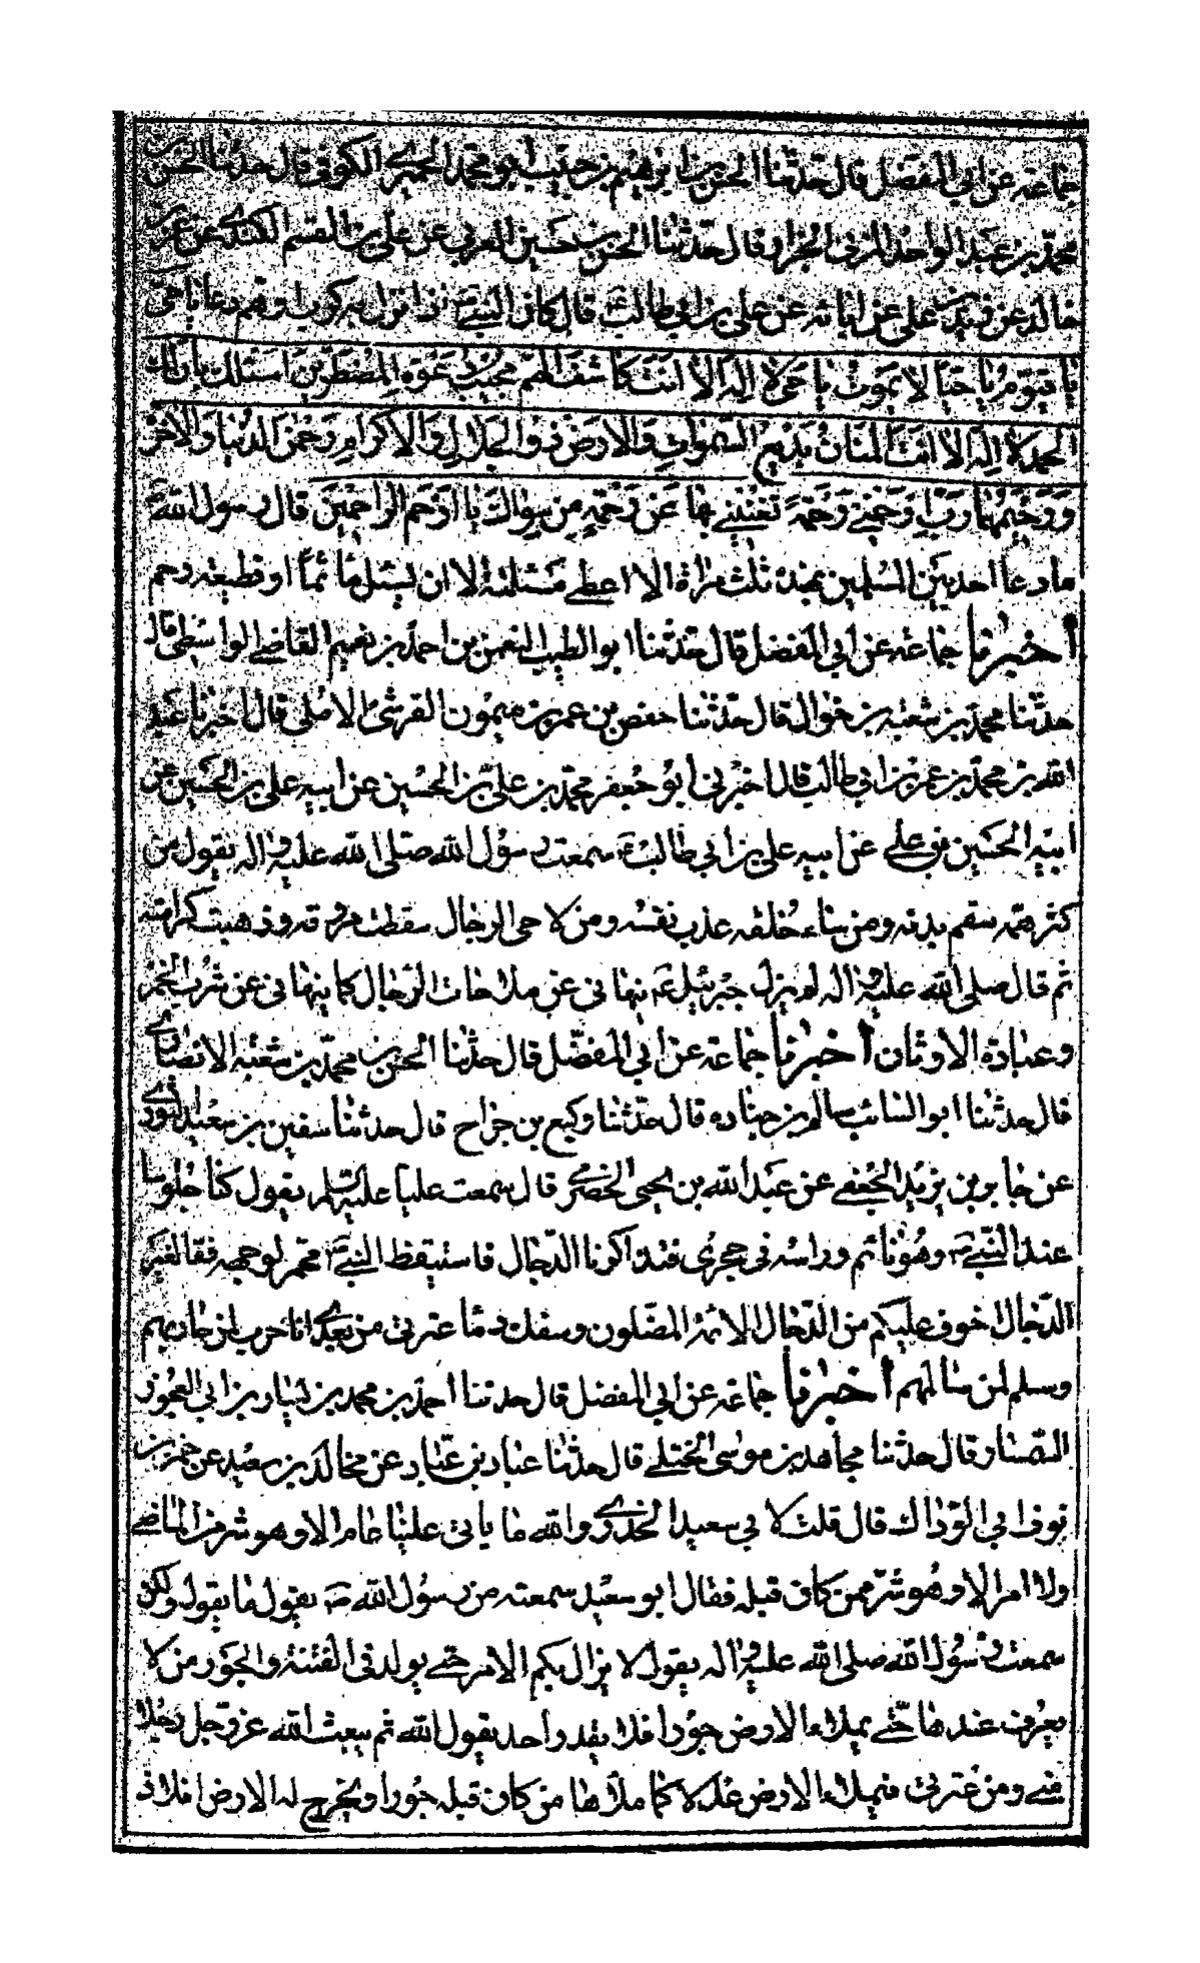 جماعة عن ابي المفضل قال حدثنا الحسن بن ابرهيم بن حبيب ابو محمد الحميري الكوفي قال حدثنا الحسن بن
محمد بن عبد الواحد المزني الخزاز قال حدثنا الحسن بن حسين العرني عن علي بن القسم الكندي عن عمر بن
خالد عن زيد بن علي عن ابائه عن علي بن ابي طالب قال كان النبي ص اذا نزل به كرب او هم دعا يا حي
يا قيوم يا حيا لا يموت يا حي لا اله الا انت كاشف الهم مجيب دعوة المضطرين اسئلك بان لك
الحمد لا اله الا انت المنان بديع السموات والارض ذو الجلال والاكرام رحمن الدنيا والاخرة
ورحيمهما رب ارحمني رحمة تغنيني بها عن رحمة من سواك يا ارحم الراحمين قال رسول الله
ما دعا احد من المسلمين بهذه ثلث مراة الا اعطي مسئلته الا ان يسئل مأثما او قطيعة رحم
أخبرنا جماعة عن ابي المفضل قال حدثنا ابو الطيب النعمن بن احمد بن نعيم القاضي الواسطي قال
حدثنا محمد بن شعبه بن خوال قال حدثنا حفص بن عمر بن ميمون القرشي الاملي قال اخبرنا عبد
الله بن محمد بن عمر بن ابي طالب قال اخبرني ابو جعفر محمد بن علي بن الحسين عن ابيه علي بن الحسين عن
ابيه الحسين بن علي عن ابيه علي بن ابي طالب ع سمعت رسول الله صلى الله عليه واله يقول من
كثر همه سقم بدنه ومن ساء خلقه عذب نفسه ومن لاحى الرجال سقطت مروته وذهبت كرامته
ثم قال صلى الله عليه واله لم يزل جبرئيل ع ينهاني عن ملاحات الرجال كما ينهاني عن شرب الخمر
وعبادة الاوثان أخبرنا جماعة عن ابي المفضل قال حدثنا الحسن بن محمد بن شعبه الانصاري
قال حدثنا ابو السائب سالم بن جناده قال حدثنا وكيع بن جراح قال حدثنا سفين بن سعيد الثوري
عن جابر بن يزيد الجعفي عن عبد الله بن يحيى الحضرمي قال سمعت عليا عليه السلم يقول كنا جلوسا
عند النبي ص وهو نائم وراسه في حجري فتذاكرنا الدجال فاستيقظ النبي ص محمر لوجهه فقال لغير
الدجال اخوف عليكم من الدجال الائمة المضلون وسفك دماء عترتي من بعدي انا حرب لمن حاربهم
وسلم لمن سالمهم أخبرنا جماعة عن ابي المفضل قال حدثنا احمد بن محمد بن بشار بن ابي العجوز
السمسار قال حدثنا مجاهد بن موسى الختلي قال حدثنا عباد بن عباد عن مجالد بن سعيد عن جبر بن
نوف ابي الوداك قال قلت لابي سعيد الخدري والله ما ياتي علينا عام الا وهو شر من الماضي
ولا امر الا وهو شر ممن كان قبله فقال ابو سعيد سمعته من رسول الله ص يقول ما يقول ولكن
سمعت رسول الله صلى الله عليه واله يقول لا يزال بكم الامر حتى يولد في الفتنة والجور من لا
يعرف عندها حتى يملاء الارض جورا فلا يقدر احد يقول الله ثم يبعث الله عز وجل رجلا
مني ومن عترتي فيملاء الارض عدلا كما ملأها من كان قبله جورا ويخرج له الارض افلاذ